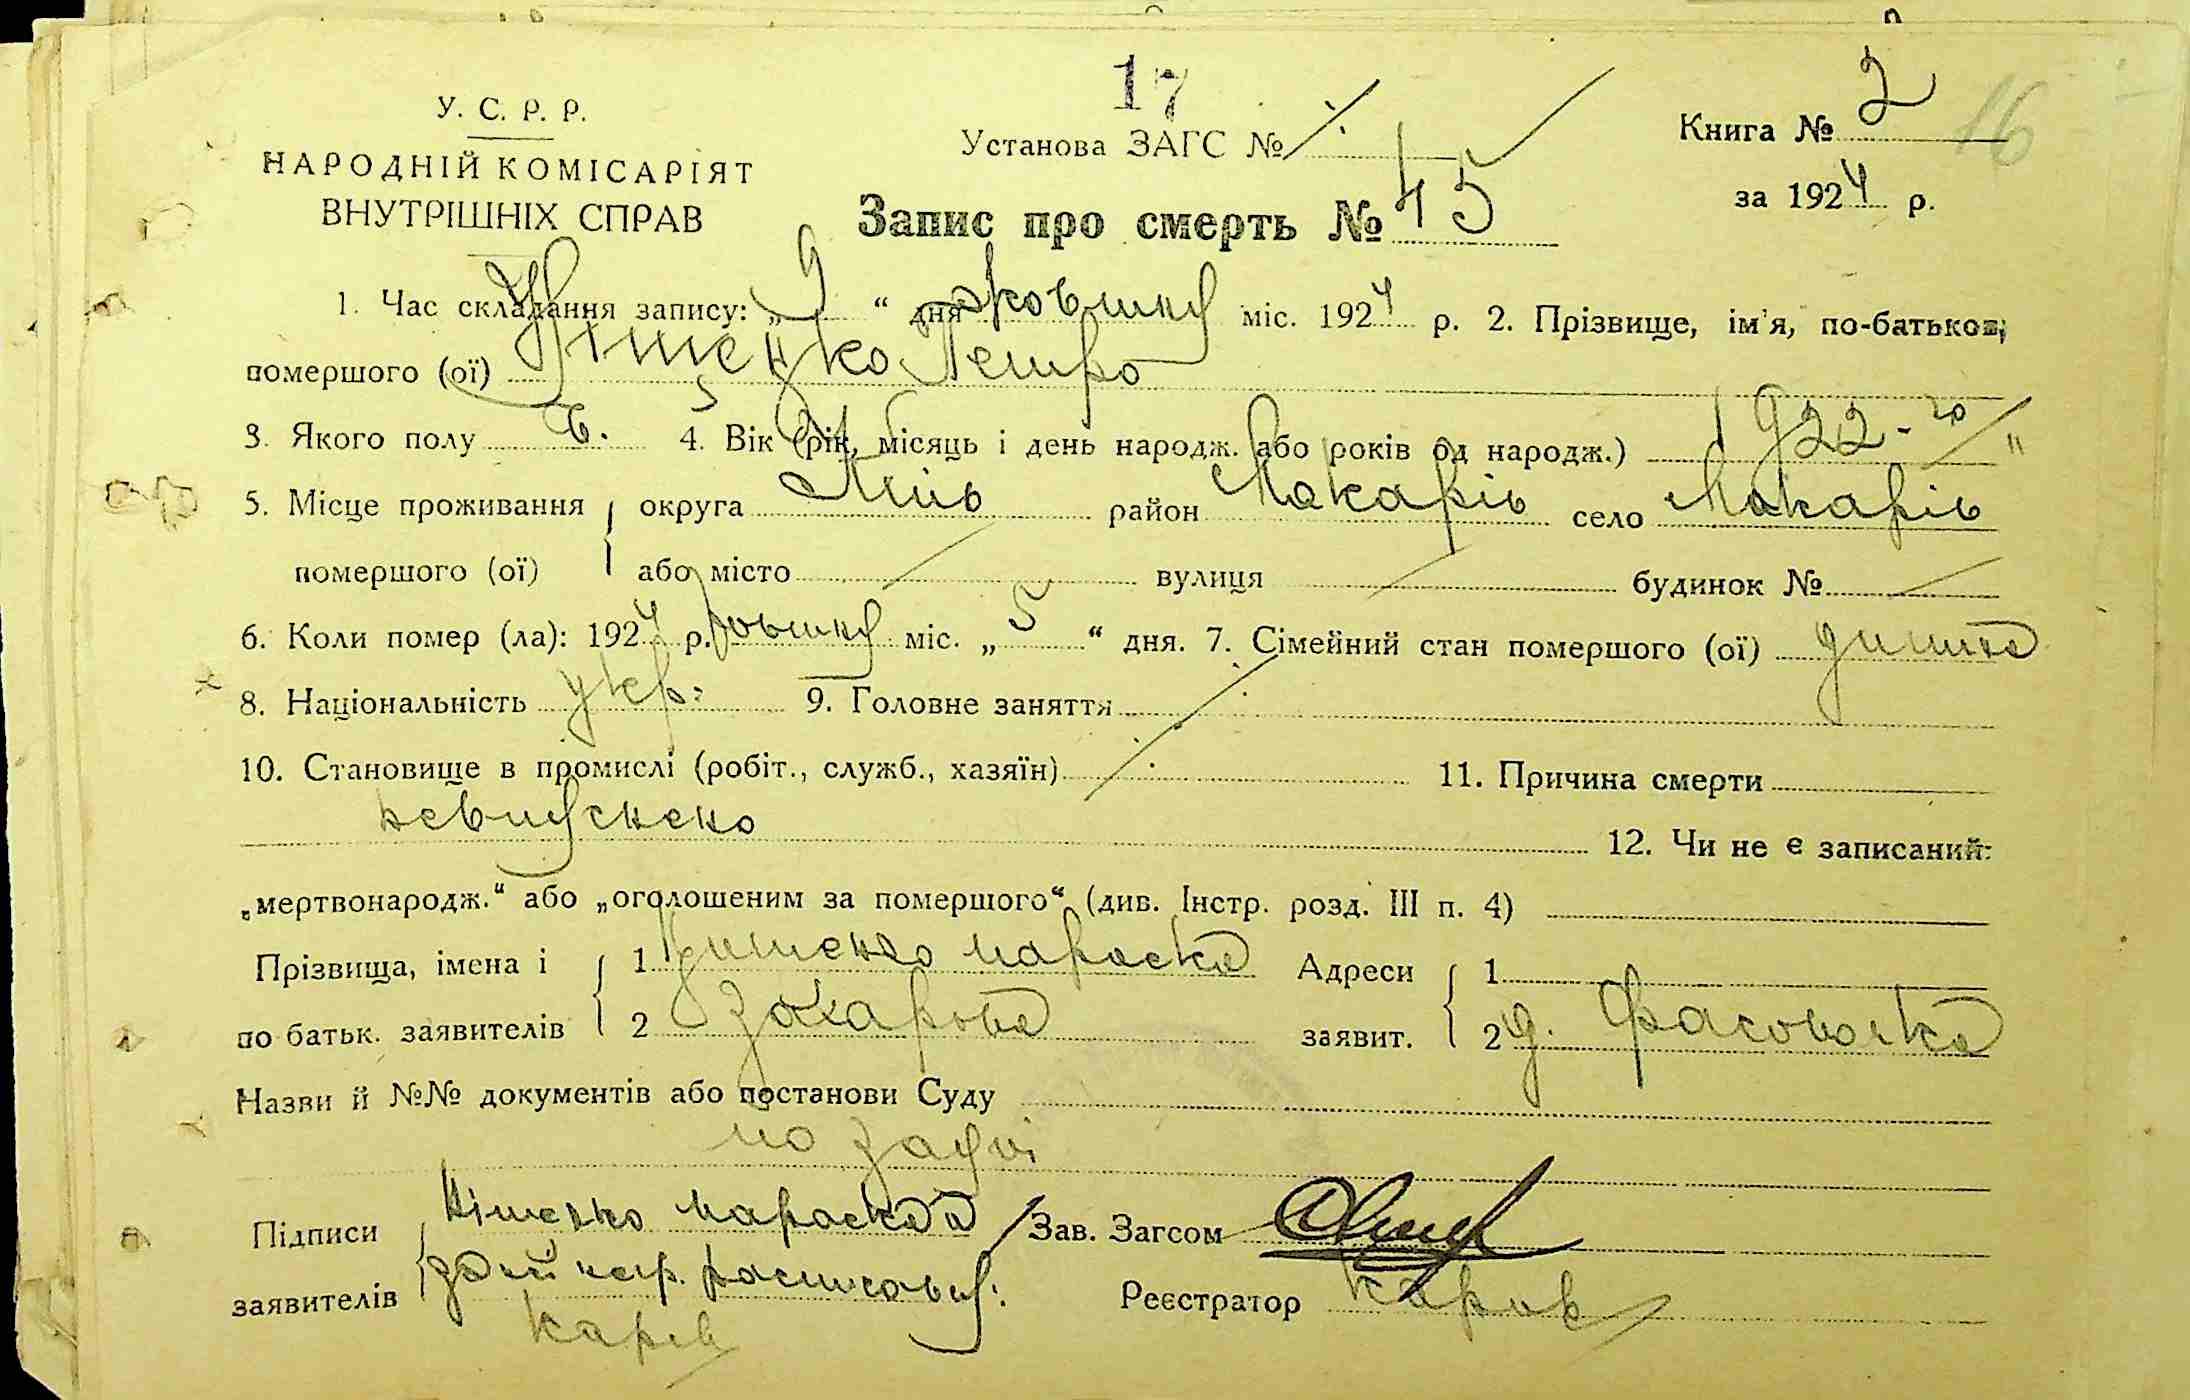 17
16
У. С. Р. Р.
НАРОДНІЙ КОМІСАРІЯТ
ВНУТРІШНІХ СПРАВ
Установа ЗАГС №
Книга № 2
за 1924 р.
Запис про смерть № 45
1. Час складання запису: „9“ дня жовтня міс. 1924 р. 2. Прізвище, ім'я, по-батькові,
помершого (ої) Петро
3. Якого полу ч. 4. Вік (рік, місяць і день народж. або років од народж.) 1922-го
5. Місце проживання округа Київ район Макарів село Макарів
помершого (ої) або місто вулиця будинок №
6. Коли помер (ла): 1924 р. жовтня міс. „5“ дня. 7. Сімейний стан помершого (ої) дитина
8. Національність укр. 9. Головне заняття
10. Становище в промислі (робіт., служб., хазяїн) 11. Причина смерти
12. Чи не є записаний:
„мертвонародж.“ або „оголошеним за помершого“ (див. Інстр. розд. III п. 4)
Прізвища, імена і 1 Параска Адреси 1
по батьк. заявителів 2 Захарова заявит. 2 д. Фасовочка
Назви й №№ документів або постанови Суду
по заяві
Підписи Параска а Зав. Загсом
заявителів Реєстратор